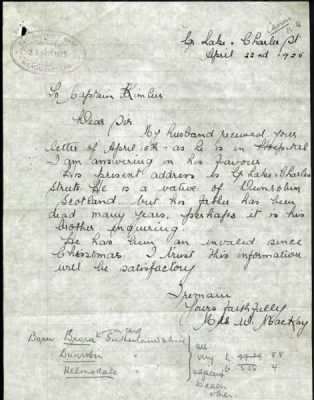 Cr Lake & Charles St
April 22nd 1925
To Captain Kimber
Dear Sir
My husband received your
letter of April 10th as he is in Hospital
I am answering in his favour
His present address is Cr Lake & Charles
Streets. He is a native of Dunrobin
Scotland but his father has been
dead many years, perhaps it is his
brother enquiring.
He has been an invalid since
Christmas. I trust this information
will be satisfactory
I remain
Yours faithfully
Mrs W. MacKay
Born Brora Sutherlandshire
Dunrobin "
Helmsdale "
all
very
adjacent
to each
other